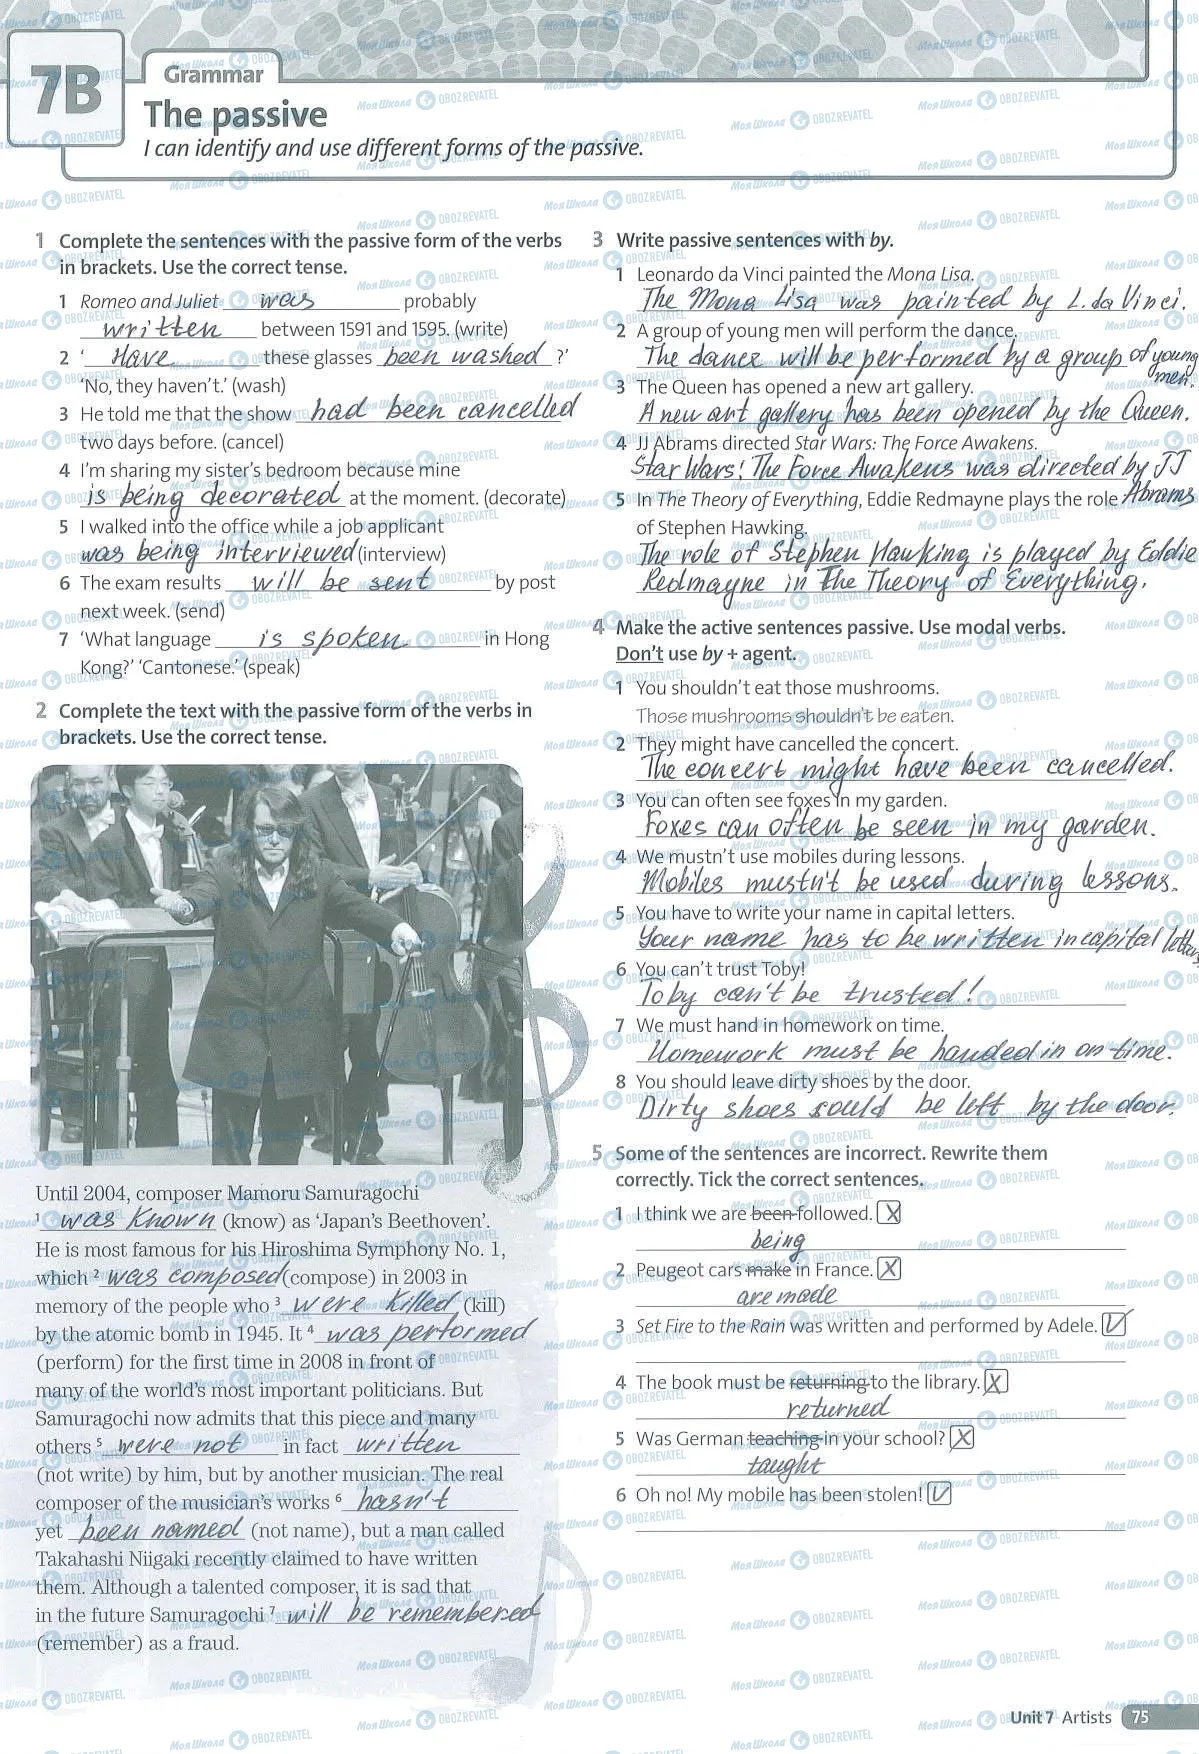 7B
Grammar
The passive
I can identify and use different forms of the passive.
1 Complete the sentences with the passive form of the verbs
in brackets. Use the correct tense.
1 Romeo and Juliet was probably
written between 1591 and 1595. (write)
2 ‘ Have these glasses been washed ?’
‘No, they haven’t.’ (wash)
3 He told me that the show had been cancelled
two days before. (cancel)
4 I’m sharing my sister’s bedroom because mine
is being decorated at the moment. (decorate)
5 I walked into the office while a job applicant
was being interviewed (interview)
6 The exam results will be sent by post
next week. (send)
7 ‘What language is spoken in Hong
Kong?’ ‘Cantonese.’ (speak)
2 Complete the text with the passive form of the verbs in
brackets. Use the correct tense.
Until 2004, composer Mamoru Samuragochi
1 was known (know) as ‘Japan’s Beethoven’.
He is most famous for his Hiroshima Symphony No. 1,
which 2 was composed (compose) in 2003 in
memory of the people who 3 were killed (kill)
by the atomic bomb in 1945. It 4 was performed
(perform) for the first time in 2008 in front of
many of the world’s most important politicians. But
Samuragochi now admits that this piece and many
others 5 were not in fact written
(not write) by him, but by another musician. The real
composer of the musician’s works 6 hasn't
yet been named (not name), but a man called
Takahashi Niigaki recently claimed to have written
them. Although a talented composer, it is sad that
in the future Samuragochi 7 will be remembered
(remember) as a fraud.
3 Write passive sentences with by.
1 Leonardo da Vinci painted the Mona Lisa.
The Mona Lisa was painted by L. da Vinci.
2 A group of young men will perform the dance.
The dance will be performed by a group of young
men.
3 The Queen has opened a new art gallery.
A new art gallery has been opened by the Queen.
4 JJ Abrams directed Star Wars: The Force Awakens.
Star Wars: The Force Awakens was directed by JJ
Abrams
5 In The Theory of Everything, Eddie Redmayne plays the role
of Stephen Hawking.
The role of Stephen Hawking is played by Eddie
Redmayne in The Theory of Everything.
4 Make the active sentences passive. Use modal verbs.
Don’t use by + agent.
1 You shouldn’t eat those mushrooms.
Those mushrooms shouldn’t be eaten.
2 They might have cancelled the concert.
The concert might have been cancelled.
3 You can often see foxes in my garden.
Foxes can often be seen in my garden.
4 We mustn’t use mobiles during lessons.
Mobiles mustn't be used during lessons.
5 You have to write your name in capital letters.
Your name has to be written in capital letters.
6 You can’t trust Toby!
Toby can't be trusted!
7 We must hand in homework on time.
Homework must be handed in on time.
8 You should leave dirty shoes by the door.
Dirty shoes sould be left by the door.
5 Some of the sentences are incorrect. Rewrite them
correctly. Tick the correct sentences.
1 I think we are been followed. X
being
2 Peugeot cars make in France. X
are made
3 Set Fire to the Rain was written and performed by Adele. V
4 The book must be returning to the library. X
returned
5 Was German teaching in your school? X
taught
6 Oh no! My mobile has been stolen! V
Unit 7 Artists 75
Моя Школа OBOZREVATEL